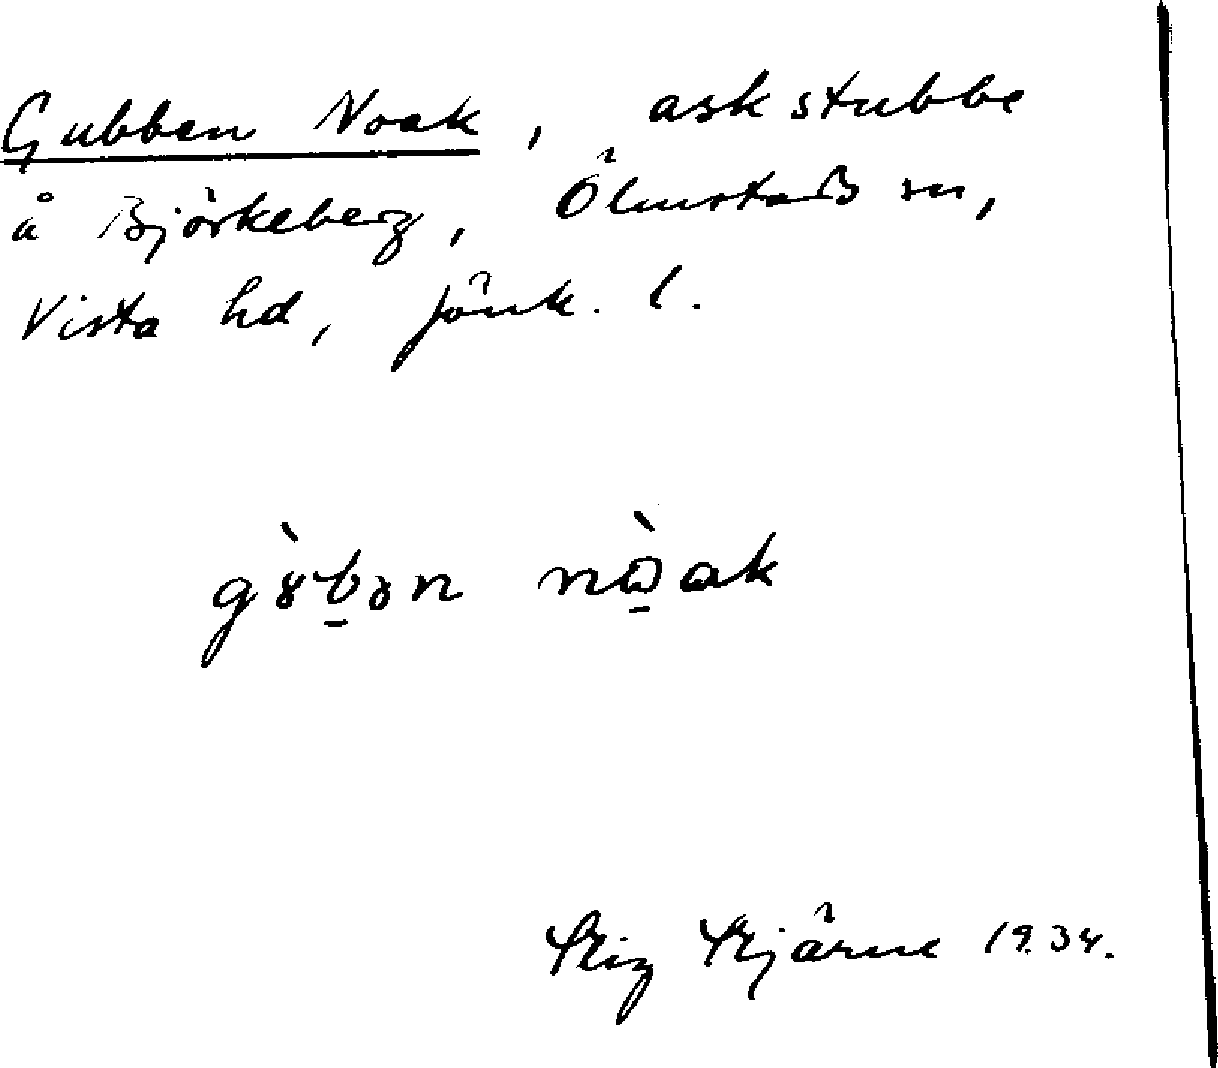 Gubben Noak, askstubbe
å Björkeberg, Ölmstads sn,
Vista hd, Jönk. l.
gɤ̀b̠ən nɷ̠̀ak
Stig Stjärne 1934.